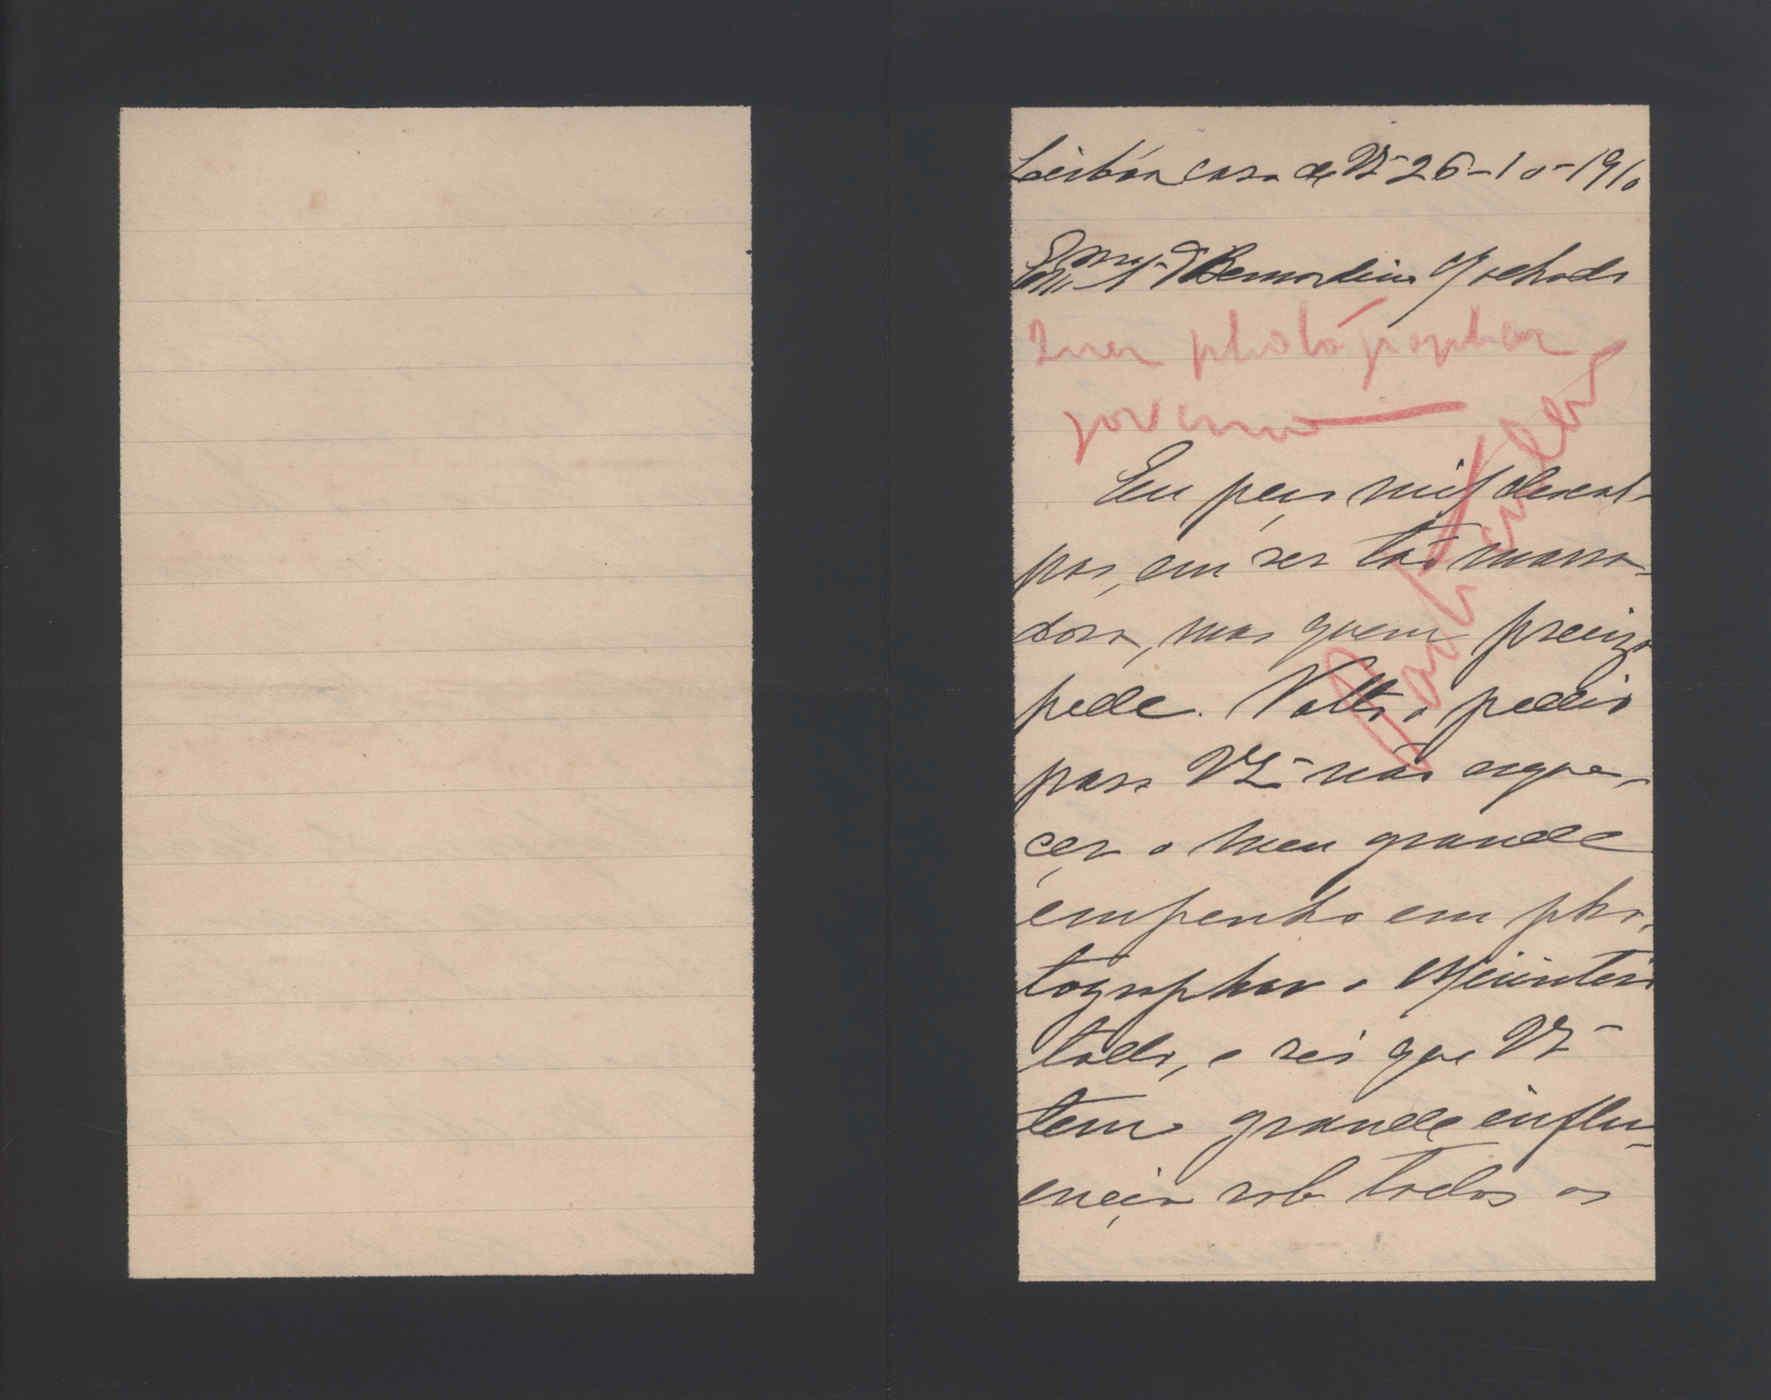 Lisbôa casa de Vª 26-10-1910
Exmo Sr Bernardino Machado
Quer photographar
governo
Particular
Eu peço mil descul-
pas, em ser tão massa-
dora, mas quem preciza
pede. Volto a pedir
para Vª não esque-
çer o meu grande
empenho em pho-
tographar o Ministerio
todo, e sei que Vª
tem grande influ-
ençia sob todos os